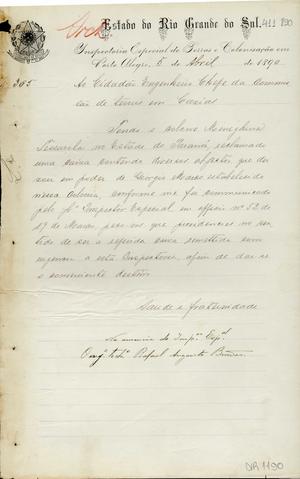 Estado do Rio Grande do Sul. 411 890
Inspectoria Especial de Terras e Colonisação em
Porto Alegre, 5 de Abril de 1890
305
Ao Cidadão Engenheiro Chefe da Commis
são de terras em Caxias
Tendo o colono Meneghina
no Estado do Paraná, reclamado
uma caixa contendo diversos objectos, que dei
xou em poder de Georgio estabelecido
nessa Colonia, conforme me foi communicado
pelo Snr Inspector Especial em officio nº 52 de
17 de Março, peço-vos que providencieis no sen
tido de ser a referida caixa remettida com
urgencia a esta Inspectoria, afim de dar-se
o conveniente destino
Saude e fraternidade
Na ausencia do Inspor Espal
Rafael Augusto
DR 1190